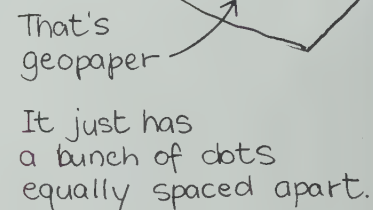 That's
geopaper
It just has
a bunch of dots
equally spaced apart.